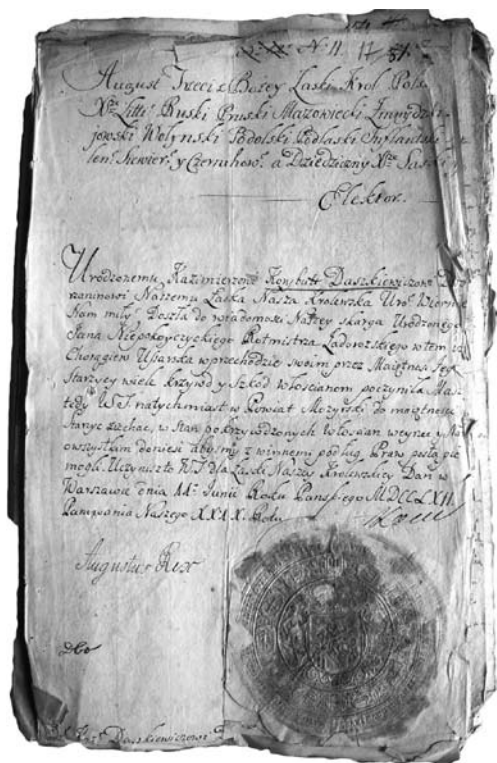 N. 11 11/51
August Trzeci z Bożey Łaski Krol Pols
Xże Litti Ruski Pruski Mazowiecki Zmuydzki
jowski Wolynski Podolski Podlaski Inflantski
len: Siewier: y Czerniho: a Dziedziczny Xże Saski
Elektor.
Urodzonemu Kazimierzowi Korybutt Daszkiewiczowi
Naszemu Łaska Nasza Krolewska Uro: Wiernie
Nam miły. Doszła do wiadomosci Naszey skarga Urodzonego
Jana Niepokoyczyckiego Rotmistrza w tem
Chorągiew w przechodzie swoim przez Maiętnosc Jego
Starzyce wiele krzywd y Szkod Włoscianom poczyniła Masz
tedy W. T. natychmiast w Powiat Mozyrski do maiętnosci
Starzyc ziechac, w Stan pokrzywdzonych Włoscian weyrzec y Na
o wszystkim doniesc abysmy z winnemi podług Praw postąpic
mogli. Uczynisz to W. T. dla Łaski Naszey Krolewskiey Dan w
Warszawie dnia 11 Junii Roku Panskiego MDCCLXII
Panowania Naszego XXIX Roku
Augustus Rex
Daszkiewiczowi